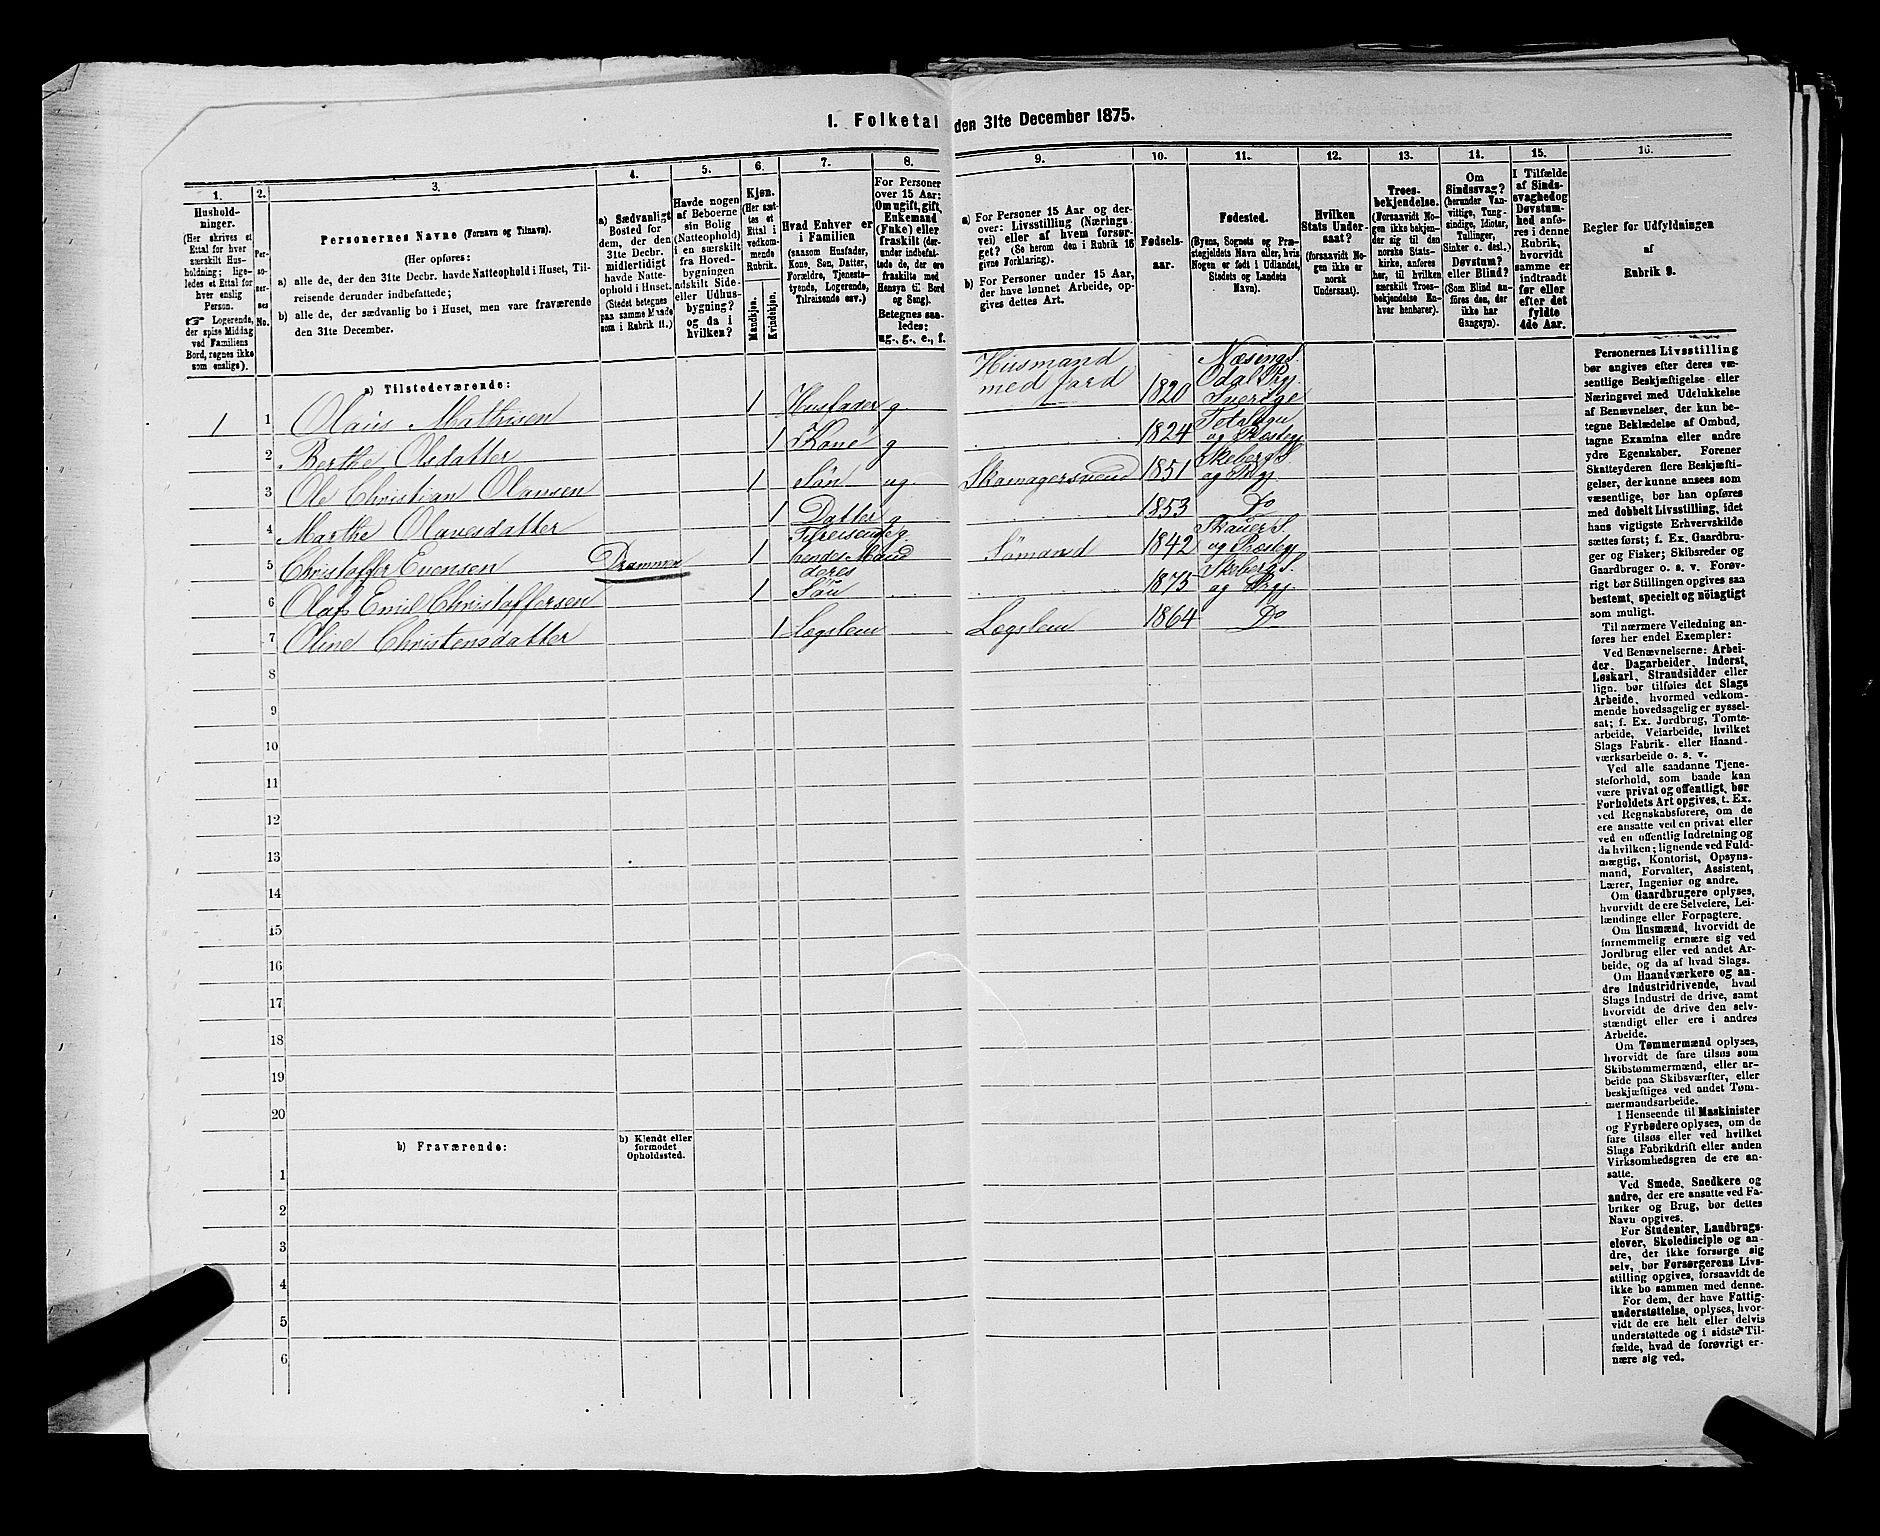 1. Folketal den 31te December 1875.
1.
Hushold-
ninger.
(Her skrives et
Ettal for hver
særskilt Hus-
holdning; lige-
ledes et Ettal for
hver enslig
Person.
☞ Logerende,
der spise Middag
ved Familiens
Bord, regnes ikke
som enslige).
2.
Per-
so-
ner-
nes
No.
3.
Personernes Navne (Fornavn og Tilnavn).
(Her opføres:
a) alle de, der den 31te Decbr. havde Natteophold i Huset, Til-
reisende derunder indbefattede;
b) alle de, der sædvanlig bo i Huset, men vare fraværende
den 31te December.
4.
a) Sædvanligt
Bosted for
dem, der den
31te Decbr.
midlertidigt
havde Natte-
ophold i Huset.
(Stedet betegnes
paa samme Maade
som i Rubrik 11.)
5.
Havde nogen
af Beboerne
sin Bolig
(Natteophold)
i en særskilt
fra Hoved-
bygningen
adskilt Side-
eller Udhus-
bygning?
og da i
hvilken?
6.
Kjøn.
(Her sæt-
tes et
Ettal i
vedkom-
mende
Rubrik.
Mandkjøn.
Kvindekjøn.
7.
Hvad Enhver er
i Familien
(saasom Husfader,
Kone, Søn, Datter,
Forældre, Tjeneste-
tyende, Logerende,
Tilreisende osv.)
8.
For Personer
over 15 Aar:
Om ugift, gift,
Enkemand
(Enke) eller
fraskilt (der-
under indbefat-
tede de, der ere
fraskilte med
Hensyn til Bord
og Seng).
Betegnes saa-
ledes:
ug., g., e., f.
9.
a) For Personer 15 Aar og der-
over: Livsstilling (Nærings-
vei) eller af hvem forsør-
get? (Se herom den i Rubrik 16
givne Forklaring).
b) For Personer under 15 Aar,
der have lønnet Arbeide, op-
gives dettes Art.
10.
Fødsels-
aar.
11.
Fødested.
(Byens, Sognets og Præ-
stegjeldets Navn eller, hvis
Nogen er født i Udlandet,
Stedets og Landets
Navn).
12.
Hvilken
Stats Under-
saat?
(forsaavidt No-
gen ikke er
norsk
Undersaat).
13.
Troes-
bekjendelse.
(Forsaavidt No-
gen ikke bekjen-
der sig til den
norske Stats-
kirke, anføres
her, til hvilken
særskilt Troes-
bekjendelse En-
hver henhører).
14.
Om
Sindssvag?
(herunder Van-
vittige, Tung-
sindige, Idioter,
Tullinger,
Sinker o. desl.)
Døvstum?
eller Blind?
(Som Blind an-
føres den, der
ikke har
Gangsyn).
15.
I Tilfælde
af Sinds-
svaghed og
Døvstum-
hed anfø-
res i denne
Rubrik,
hvorvidt
samme er
indtraadt
før eller
efter det
fyldte
4de Aar.
16.
Regler for Udfyldningen
af
Rubrik 9.
a) Tilstedeværende:
1 1 Olaus Mathisen 1 Husfader g. Husmand med Jord 1820 Næsengs. Odal Prgj.
2 Berthe Olsdatter 1 Kone g 1824 Sverige
3 Ole Christian Olausen 1 Søn ug. Skomagersvend 1851 og Præstegj
4 Marthe Olavesdatter 1 Datter g 1853 Do
5 Christoffer Evensen Drammen 1 Tilreisende g Sømand 1842 og Præstegj
6 Olaf Emil Christoffersen 1 Søn 1875 Skebergs. og Prgj
7 Oline Christensdatter 1 Lægslem Lægslem 1864 Do
8
9
10
11
12
13
14
15
16
17
18
19
20
b) Fraværende:
b) Kjendt eller
formodet
Opholdssted.
1
2
3
4
5
6
Personernes Livsstilling
bør angives efter deres væ-
sentlige Beskjæftigelse eller
Næringsvei med Udelukkelse
af Benævnelser, der kun be-
tegne Beklædelse af Ombud,
tagne Examina eller andre
ydre Egenskaber. Forener
Skatteyderen flere Beskjæfti-
gelser, der kunne ansees som
væsentlige, bør han opføres
med dobbelt Livsstilling, idet
hans vigtigste Erhvervskilde
sættes først; f. Ex. Gaardbru-
ger og Fisker; Skibsreder og
Gaardbruger o. s. v. Forøv-
rigt bør Stillingen opgives saa
bestemt, specielt og nøiagtigt
som muligt.
Til nærmere Veiledning an-
føres her endel Exempler:
Ved Benævnelserne: Arbei-
der, Dagarbeider, Inderst,
Løskarl, Strandsidder eller
lign. bør tilføies det Slags
Arbeide, hvormed vedkom-
mende hovedsagelig er syssel-
sat; f. Ex. Jordbrug, Tomte-
arbeide, Veiarbeide, hvilket
Slags Fabrik- eller Haand-
værksarbeide o. s. v.
Ved alle saadanne Tjene-
steforhold, som baade kan
være privat og offentligt, bør
Forholdets Art opgives, t. Ex.
ved Regnskabsførere, om de
ere ansatte ved en privat eller
ved en offentlig Indretning og
da hvilken; lignende ved Fuld-
mægtig, Kontorist, Opsyns-
mand, Forvalter, Assistent,
Lærer, Ingeniør og andre.
Om Gaardbrugere oplyses,
hvorvidt de ere Selveiere, Lei-
lændinge eller Forpagtere.
Om Husmænd, hvorvidt de
fornemmelig ernære sig ved
Jordbrug eller ved andet Ar-
beide, og da af hvad Slags.
Om Haandværkere og an-
dre Industridrivende, hvad
Slags Industri de drive, samt
hvorvidt de drive den selv-
stændigt eller ere i andres
Arbeide.
Om Tømmermænd oplyses,
hvorvidt de fare tilsøs som
Skibstømmermænd, eller ar-
beide paa Skibsværfter, eller
beskjæftiges ved andet Tøm-
mermandsarbeide.
I Henseende til Maskinister
og Fyrbødere oplyses, om de
fare tilsøs eller ved hvilket
Slags Fabrikdrift eller anden
Virksomhedsgren de ere an-
satte.
Ved Smede, Snedkere og
andre, der ere ansatte ved Fa-
briker og Brug, bør dettes
Navn opgives.
For Studenter, Landbrugs-
elever, Skoledisciple og an-
dre, der ikke forsørge sig
selv, bør Forsørgerens Livs-
stilling opgives, forsaavidt de
ikke bo sammen med denne.
For dem, der have Fattig-
understøttelse, oplyses, hvor-
vidt de ere helt eller delvis
understøttede og i sidste Til-
fælde, hvad de forøvrigt er-
nære sig ved.